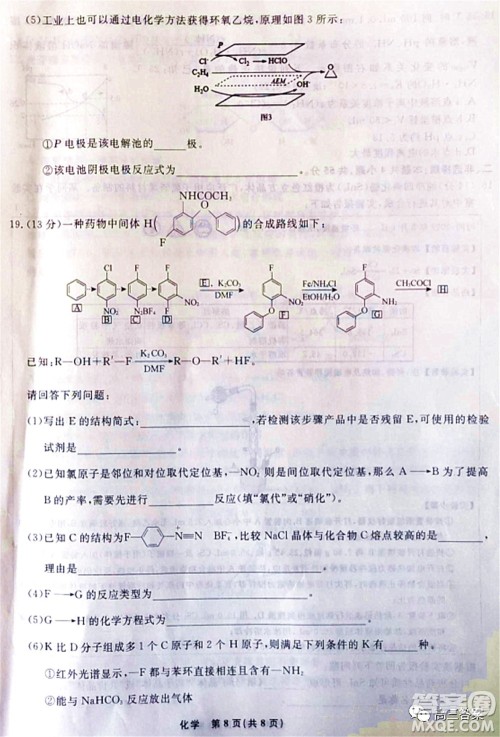 (5)工业上也可以通过电化学方法获得环氧乙烷,原理如图3所示:
P
Cl⁻ Cl₂ HClO
C₂H₄
AEM
H₂O OH⁻
图3
①P电极是该电解池的______极。
②该电池阴极电极反应式为______。
19.(13分)一种药物中间体H( NHCOCH₃ O F )的合成路线如下:
Cl F F F F
NO₂ N₂BF₄ NO₂ NO₂ NH₂
E, K₂CO₃ DMF
Fe/NH₄Cl EtOH/H₂O
CH₃COCl
A B C D F G H
已知:R—OH+R′—F K₂CO₃ DMF R—O—R′+HF。
请回答下列问题:
(1)写出E的结构简式:______,若检测该步骤产品中是否残留E,可使用的检验
试剂是______。
(2)已知氯原子是邻位和对位取代定位基,—NO₂则是间位取代定位基,那么A→B为了提高
B的产率,需要先进行______反应(填“氯代”或“硝化”)。
(3)已知C的结构为F—N=N BF₄,比较NaCl晶体与化合物C熔点较高的是______,
理由是______。
(4)F→G的反应类型为______。
(5)G→H的化学方程式为______。
(6)K比D分子组成多1个C原子和2个H原子,则满足下列条件的K有______种。
①红外光谱显示,—F都与苯环直接相连且含—NH₂
②能与NaHCO₃反应放出气体
化学 第8页(共8页)
答案圈
MXQE.COM
高三答案